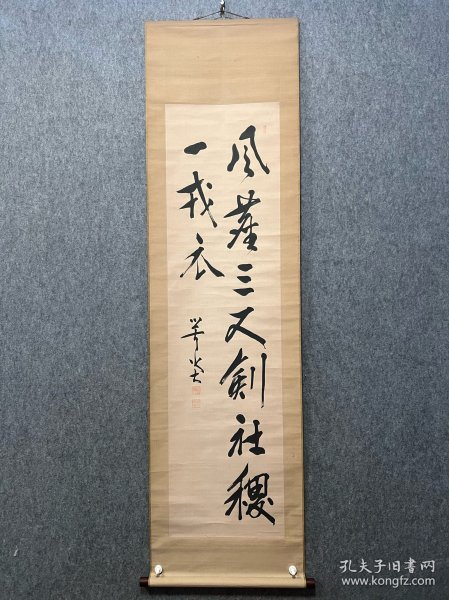 風塵三尺剣社稷
一戎衣
孔夫子旧书网
www.kongfz.com